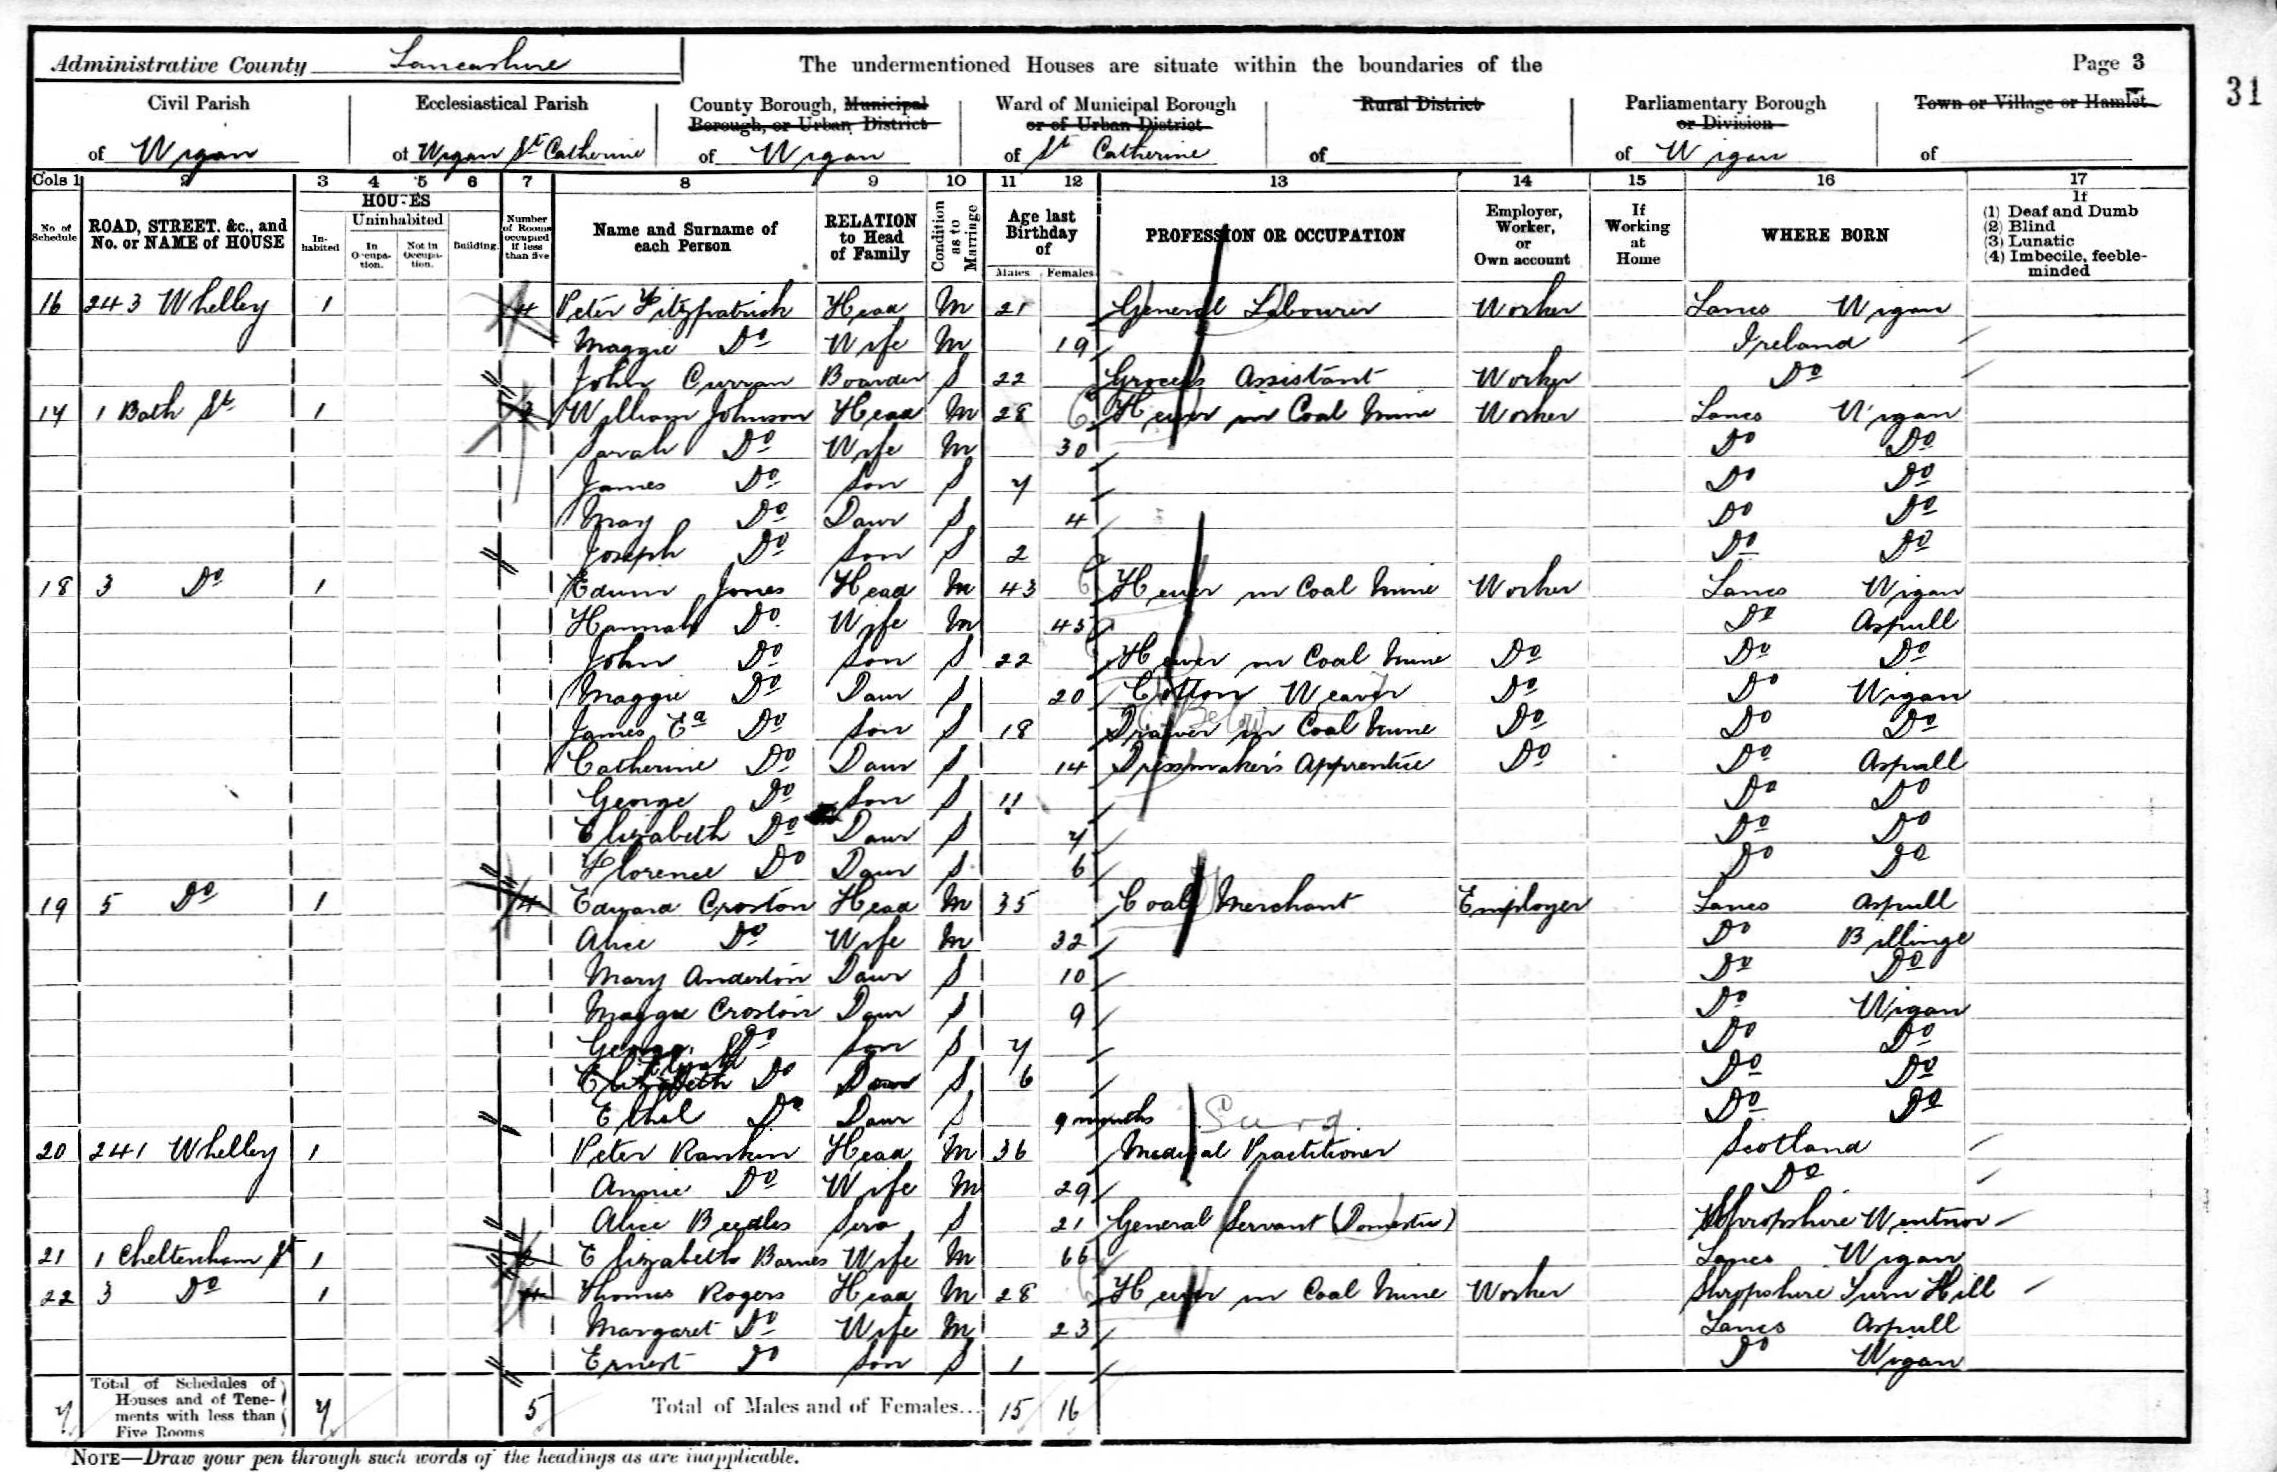 Administrative County Lancashire The undermentioned Houses are situate within the boundaries of the Page 3
31
Civil Parish of Wigan
Ecclesiastical Parish of Wigan St Catherine
County Borough, Municipal Borough, or Urban District of Wigan
Ward of Municipal Borough or of Urban District of St Catherine
Rural District of
Parliamentary Borough or Division of Wigan
Town or Village or Hamlet of
Cols 1 2 3 4 5 6 7 8 9 10 11 12 13 14 15 16 17
No. of Schedule
ROAD, STREET, &c., and No. or NAME of HOUSE
HOUSES
Inhabited
Uninhabited
In Occupation.
Not in Occupation.
Building.
Number of Rooms occupied if less than five
Name and Surname of each Person
RELATION to Head of Family
Condition as to Marriage
Age last Birthday of
Males Females
PROFESSION OR OCCUPATION
Employer, Worker, or Own account
If Working at Home
WHERE BORN
If
(1) Deaf and Dumb
(2) Blind
(3) Lunatic
(4) Imbecile, feeble-minded
16 243 Whelley 1 4 Peter Fitzpatrick Head M 21 General Labourer Worker Lancs Wigan
Maggie Do Wife M 19 Ireland
John Curran Boarder S 22 Grocer's Assistant Worker Do
17 1 Bath St 1 3 William Johnson Head M 28 Hewer in Coal Mine Worker Lancs Wigan
Sarah Do Wife M 30 Do Do
James Do Son S 7 Do Do
May Do Daur S 4 Do Do
Joseph Do Son S 2 Do Do
18 3 Do 1 Edwin Jones Head M 43 Hewer in Coal Mine Worker Lancs Wigan
Hannah Do Wife M 45 Do Aspull
John Do Son S 22 Hewer in Coal Mine Do Do Do
Maggie Do Daur S 20 Cotton Weaver Do Do Wigan
James Ed Do Son S 18 Drawer in Coal Mine Do Do Do
Below
Catherine Do Daur S 14 Dressmaker's Apprentice Do Do Aspull
George Do Son S 11 Do Do
Elizabeth Do Daur S 7 Do Do
Florence Do Daur S 6 Do Do
19 5 Do 1 4 Edward Croston Head M 35 Coal Merchant Employer Lancs Aspull
Alice Do Wife M 32 Do Billinge
Mary Anderton Daur S 10 Do Do
Maggie Croston Daur S 9 Do Wigan
George Do Son S 7 Do Do
Elizabeth Do Daur S 6 Do Do
Ethel Do Daur S 9 months Do Do
Surg.
20 241 Whelley 1 Peter Rankin Head M 36 Medical Practitioner Scotland
Annie Do Wife M 29 Do
Alice Beedles Serv S 21 General Servant (Domestic) Shropshire Wentnor
21 1 Cheltenham St 1 2 Elizabeth Barnes Wife M 66 Lancs Wigan
22 3 Do 1 4 Thomas Rogers Head M 28 Hewer in Coal Mine Worker Shropshire Turn Hill
Margaret Do Wife M 23 Lancs Aspull
Ernest Do Son S 1 Do Wigan
7 Total of Schedules of Houses and of Tenements with less than Five Rooms 7 5 Total of Males and of Females... 15 16
NOTE—Draw your pen through such words of the headings as are inapplicable.